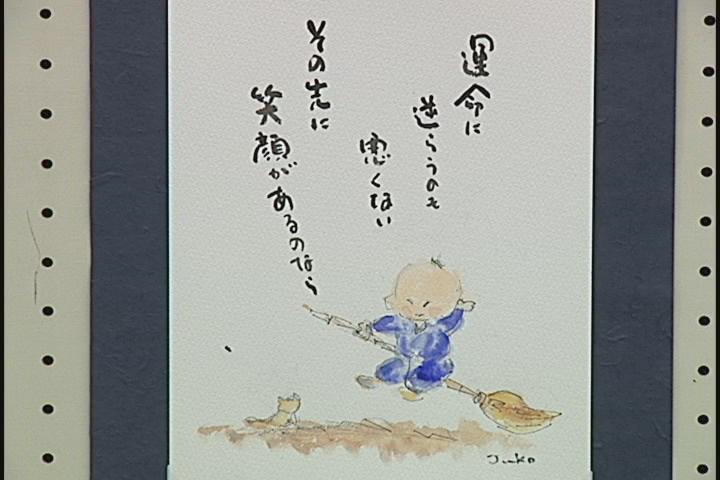 運命に
逆らうのも
悪くない
その先に
笑顔があるのなら
Junko